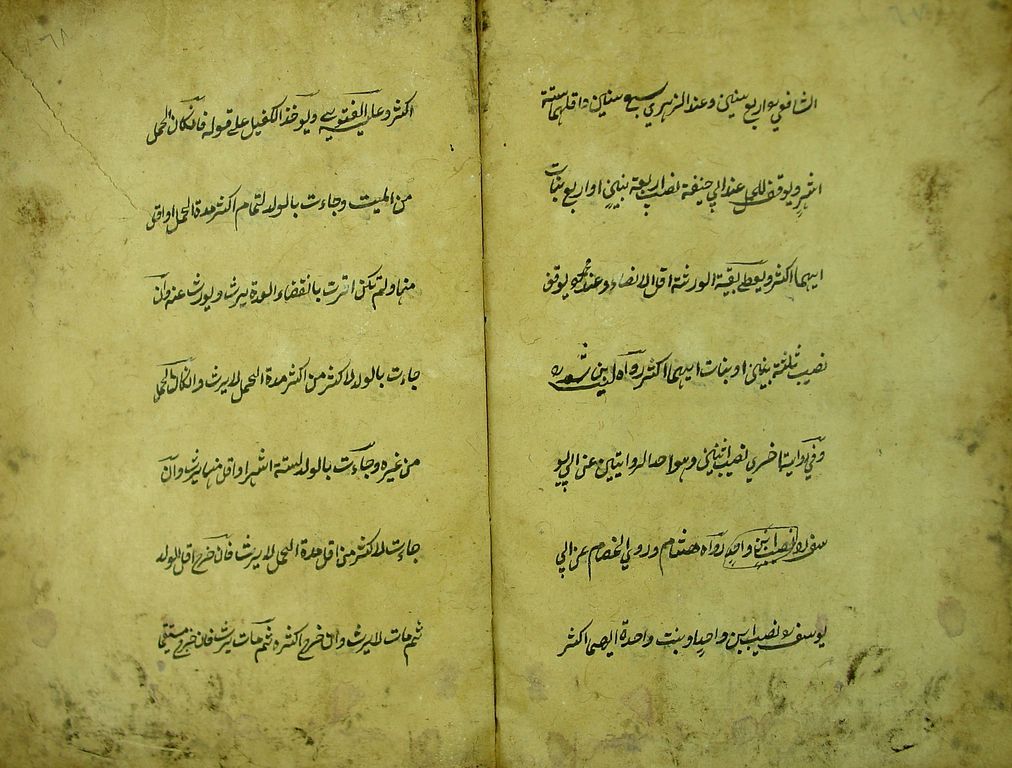 ٦٧
الشافعي اربع سنين وعند الزهري سبع سنين واقلها ستة
اشهر ويوقف للحمل عند ابي حنيفة نصيب اربعة بنين او اربع بنات
ايهما اكثر ويعطى بقية الورثة اقل الانصباء وعند محمد يوقف
نصيب ثلثة بنين او بنات ايهما اكثر رواه ليث بن سعد
وفي رواية اخرى نصيب ابنين وهو احد الروايتين عن ابي يو
سف نصيب ابن واحد رواه هشام وروي الخصاف عن ابي
يوسف نصيب ابن واحد او بنت واحدة ايهما اكثر
٦٨
اكثر وعليه الفتوى ويوخذ الكفيل على قوله فان كان الحمل
من الميت وجاءت بالولد لتمام اكثر مدة الحمل او اقل
منها ولم تكن اقرت بانقضاء العدة يرث ويورث عنه وان
جاءت بالولد لاكثر من اكثر مدة الحمل لا يرث وان كان الحمل
من غيره وجاءت بالولد لستة اشهر او اقل منها يرث وان
جاءت لاكثر من اقل مدة الحمل لا يرث فان خرج اقل الولد
ثم مات لا يرث وان خرج اكثره ثم مات يرث فان خرج مستقيما